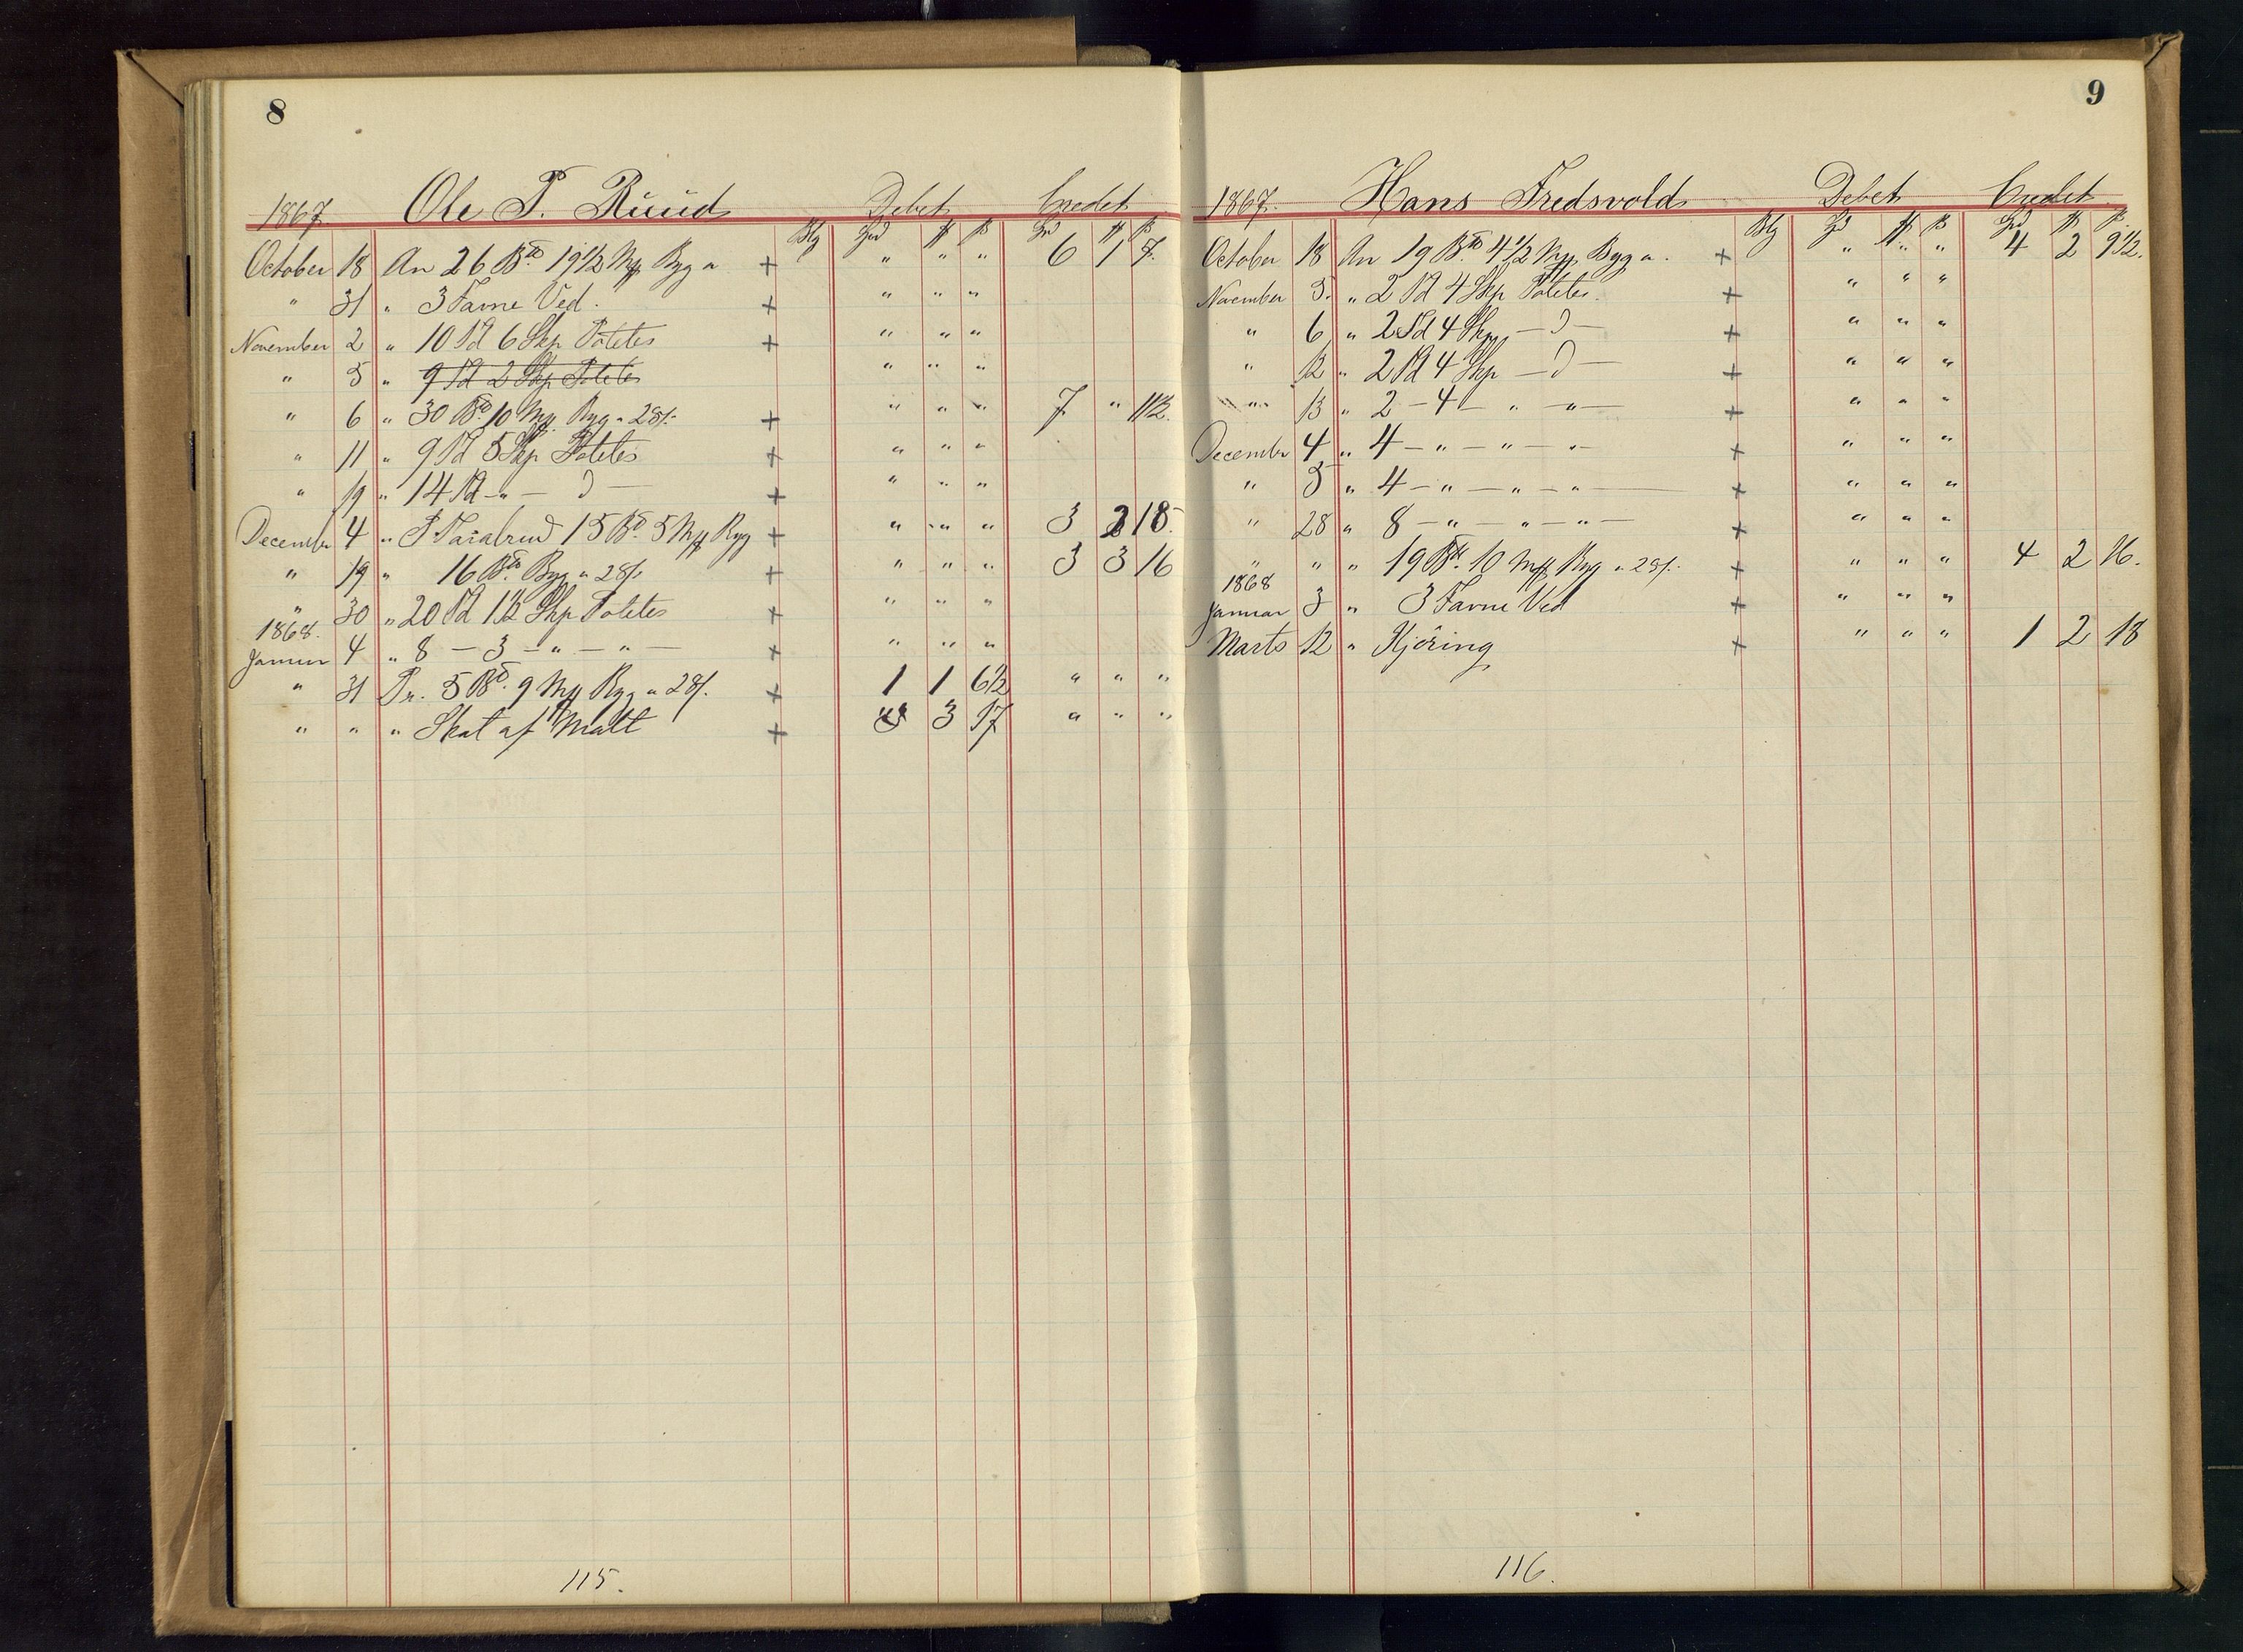 8
1867. Ole P. Ruud Debet Credet
Blg Spd # ß Spd # ß
October 18 An 26 Bd 19 1/2 Mp Byg a + " " " 6 1 7.
" 31 " 3 Favne Ved. + " " "
November 2 " 10 Td 6 Skp Potetes + " " "
" 5 " 9 Td 2 Skp Potetes " " "
" 6 " 30 Bd. 10 Mp. Byg a 28/- + " " " 7 " 11 1/2.
" 11 " 9 Td 5 Skp Potetes + " " "
" 19 " 14 Td - " - D - + " " "
December 4 " P. 15 Bd. 5 Mp Byg + " " " 3 2 18.
" 19 " 16 Bd. Byg a 28/- + " " " 3 3 16
" 30 " 20 Td 1 1/2 Skp Potetes + " " "
1868.
Januar 4 " 8 - 3 - " - " - + " " "
" 31 Pr. 5 Bd. 9 Mp Byg a 28/. + 1 1 6 1/2 " " "
" " " Skat af Malt + " 3 17 " " "
115.
9
1867. Hans Fredsvold Debet Credet
Blg Spd # ß Spd # ß
October 18 An 19 Bd. 4 1/2 Mp Byg a. + " " " 4 2 9 1/2.
November 5. " 2 Td 4 Skp Potetes. + " " "
" 6 " 2 Td 4 Skp - D - + " " "
" 12 " 2 Td 4 Skp - D - + " " "
" 13 " 2 - 4 - " - " - + " " "
December 4 " 4 - " - " - " - + " " "
" 5 " 4 - " - " - " - + " " "
" 28 " 8 - " - " - " - + " " "
" " " 19 Bd. 10 Mp Byg a 28/- + " " " 4 2 16.
1868
Januar 3 " 3 Favne Ved + " " "
Marts 12 " Kjöring + " " " 1 2 18
116.